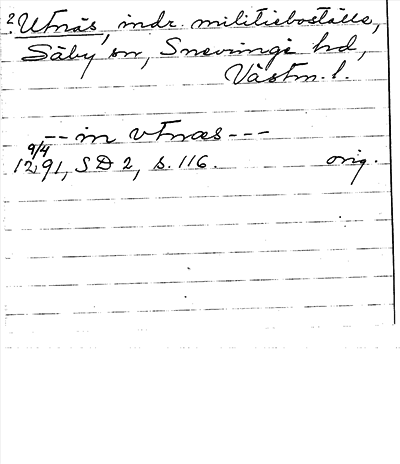 2. Utnäs, indr. militieboställe,
Säby sn, Snevringe hd,
Västm. l.
-- in vtnæs ---
9/4
1291, SD 2, s. 116. orig.